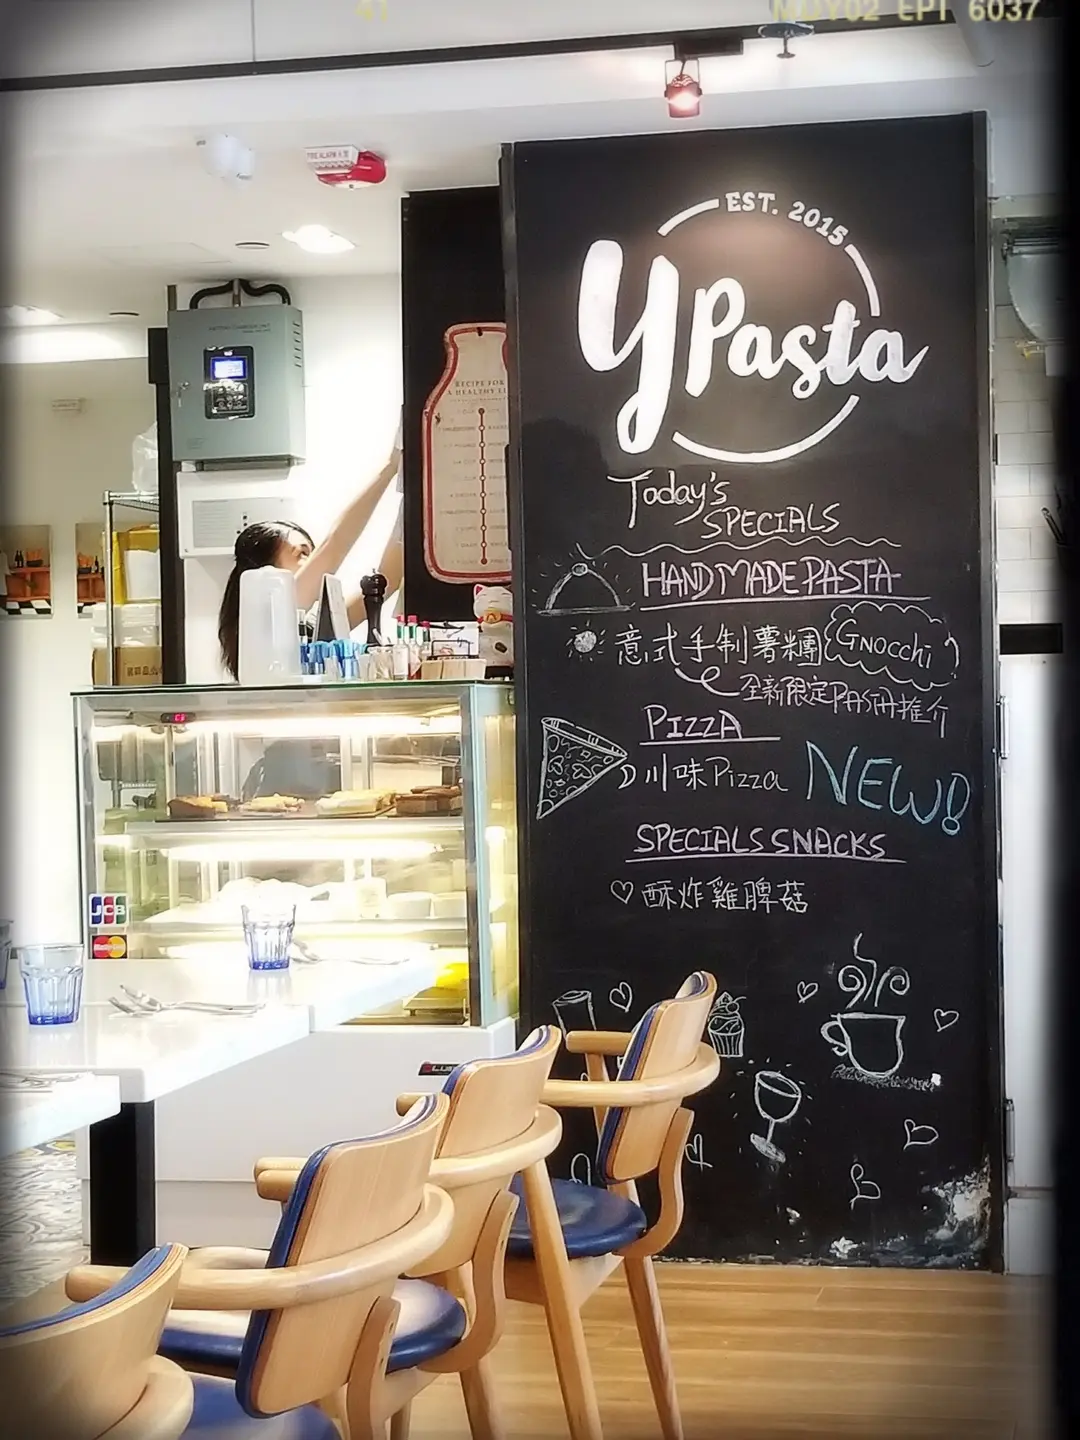 41
EPT 6037
FIRE ALARM
EST. 2015
Y Pasta
RECIPE FOR
A HEALTHY
Today's
SPECIALS
HANDMADE PASTA
意式手制薯糰 Gnocchi
全新限定PASTA推介
PIZZA
川味Pizza NEW!
SPECIALS SNACKS
♡ 酥炸雞脾菇
JCB